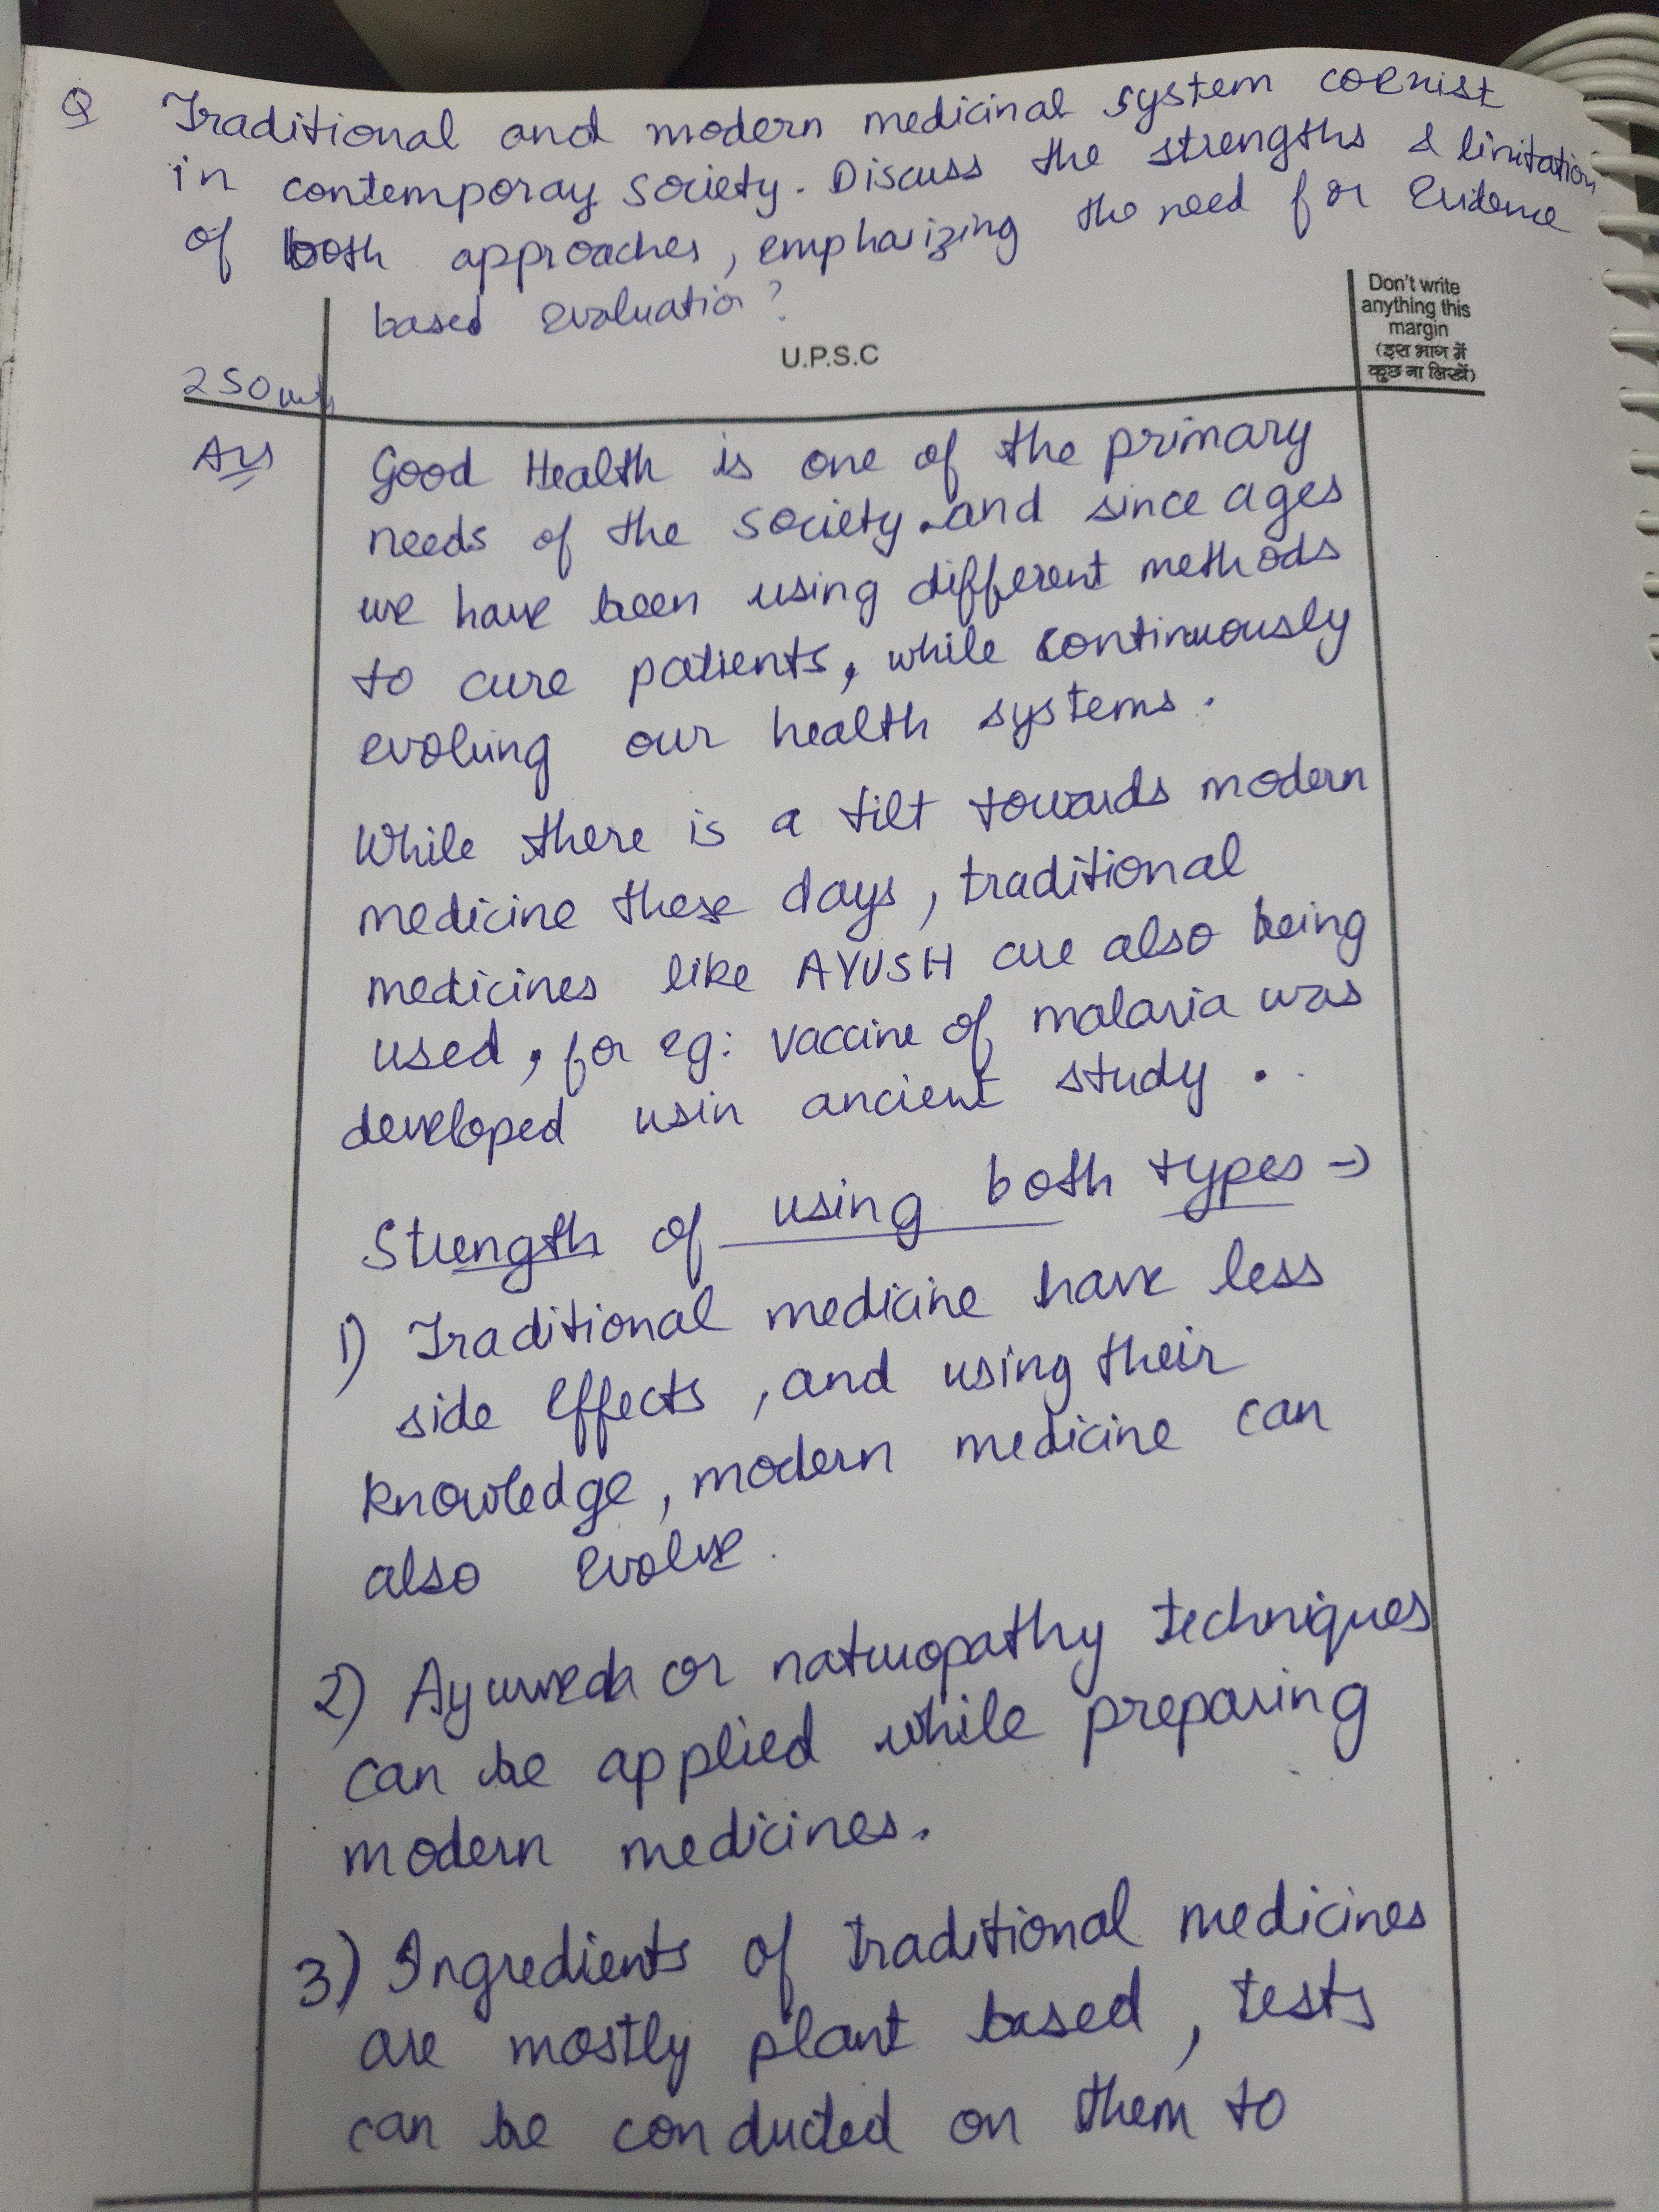 Q Traditional and modern medicinal system coexist
in contemporay society. Discuss the strengths & limitation
of both approaches, emphasizing the need for Evidence
based evaluation?
Don't write
anything this
margin
(इस भाग में
कुछ ना लिखें)
U.P.S.C
250
Ans Good Health is one of the primary
needs of the society and since ages
we have been using different methods
to cure patients, while continuously
evolving our health systems.
While there is a tilt towards modern
medicine these days, traditional
medicines like AYUSH are also being
used, for eg: vaccine of malaria was
developed usin ancient study.
Strength of using both types →
1) Traditional medicine have less
side effects, and using their
knowledge, modern medicine can
also evolve.
2) Ayurveda or naturopathy techniques
can be applied while preparing
modern medicines.
3) Ingredients of traditional medicines
are mostly plant based, tests
can be conducted on them to